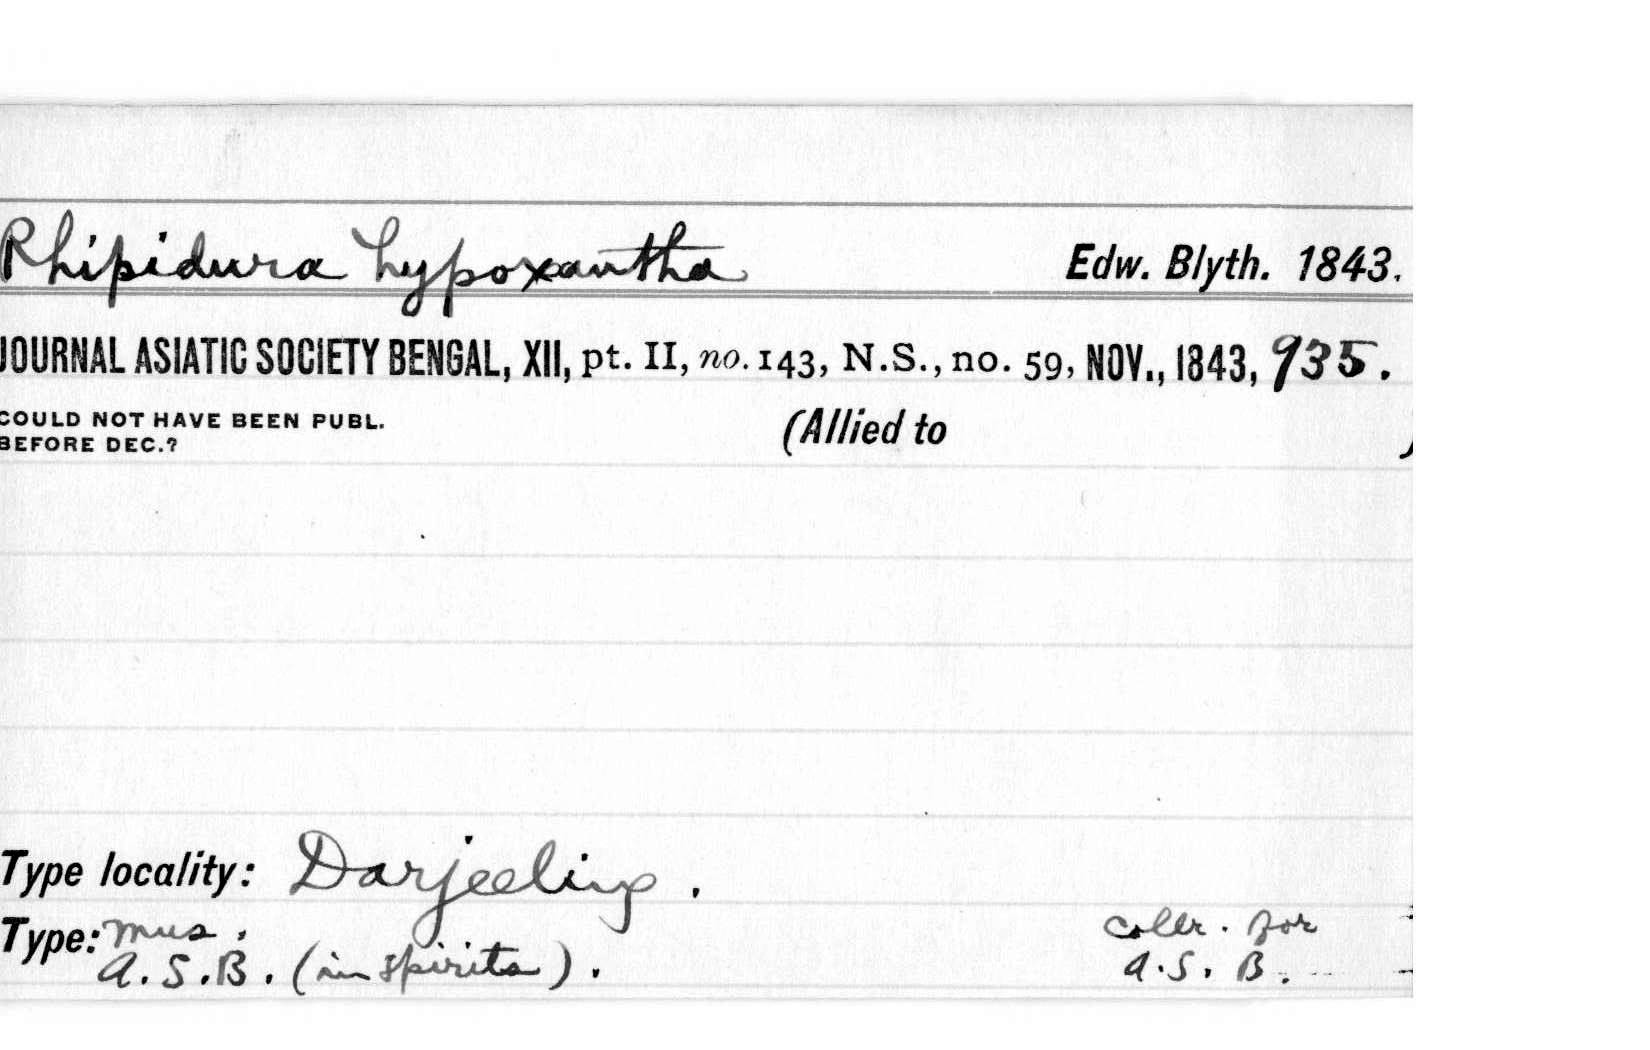 Rhipidura hypoxantha Edw. Blyth. 1843.
JOURNAL ASIATIC SOCIETY BENGAL, XII, pt. II, no. 143, N.S., no. 59, NOV., 1843, 935.
COULD NOT HAVE BEEN PUBL. (Allied to )
BEFORE DEC.?
Type locality: Darjeeling.
Type: mus. collr. for
A.S.B. (in spirits). A.S.B.